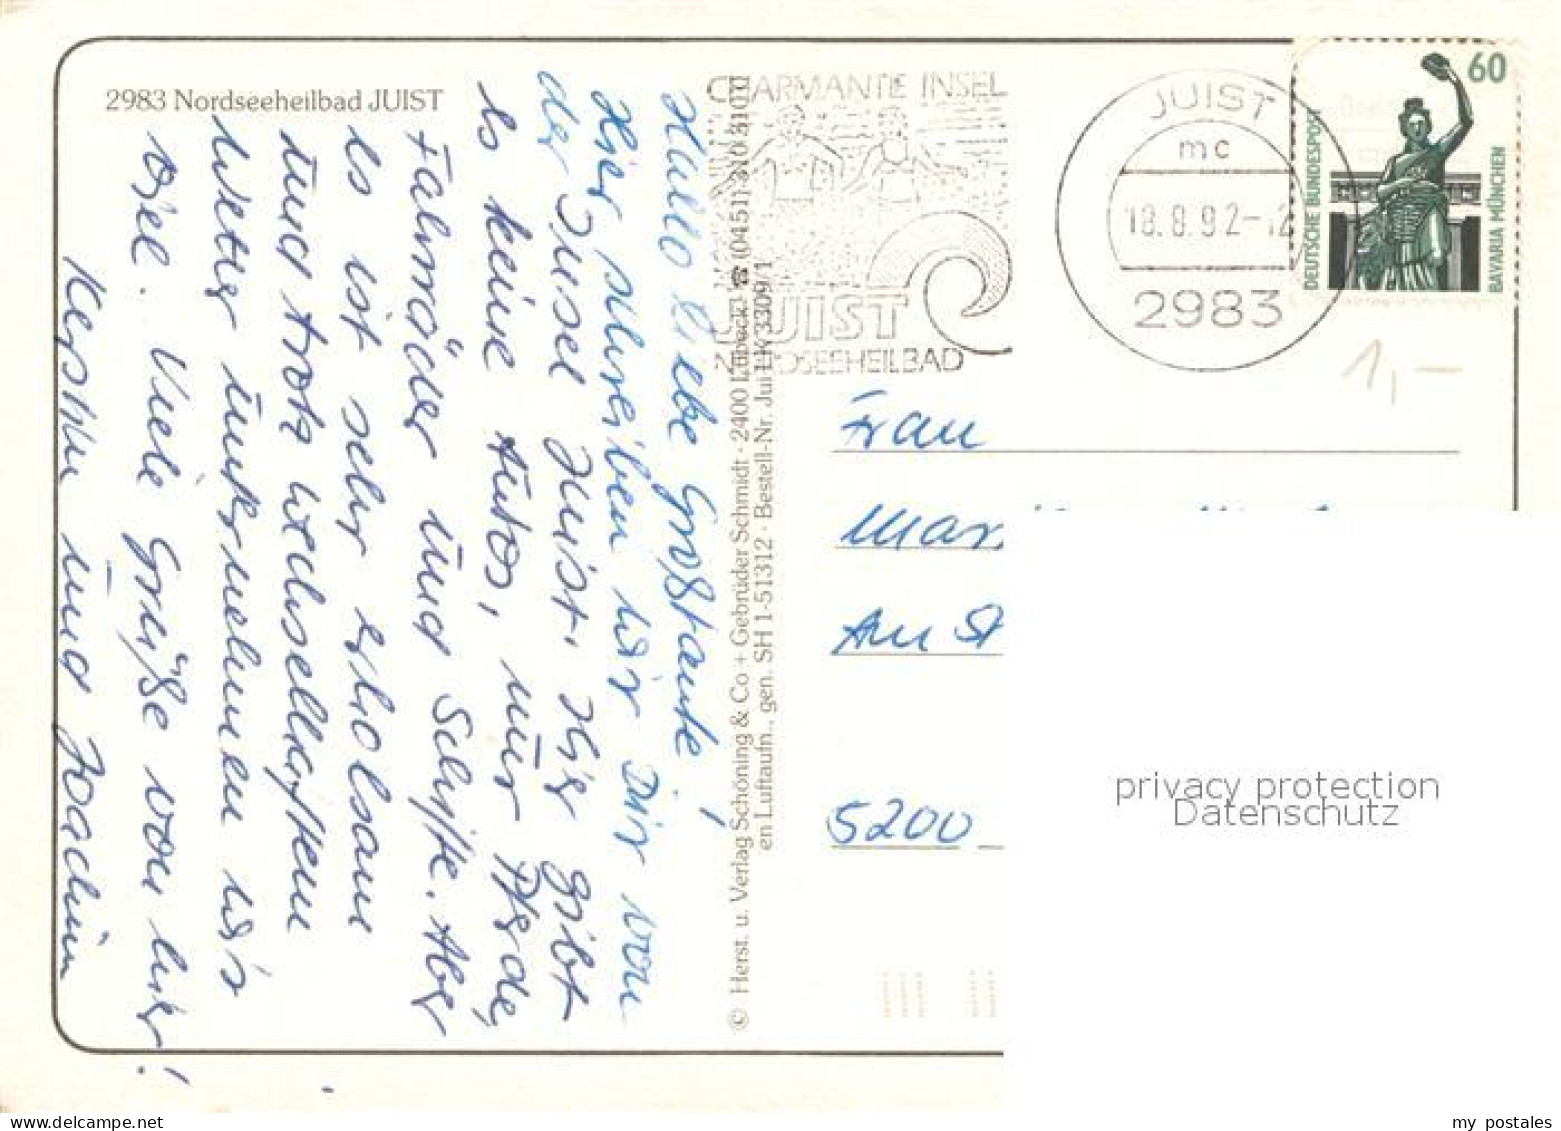 2983 Nordseeheilbad JUIST
Hallo liebe Großtante!
Hier schreiben wir Dir von
der Insel Juist. Hier gibt
es keine Autos, nur Pferde,
Fahrräder und Schiffe. Aber
es ist sehr erholsam
und trotz wechselhaftem
Wetter unternehmen wir
viel. Viele Grüße von hier!
Kerstin und Joachim
© Herst. u. Verlag Schöning & Co + Gebrüder Schmidt · 2400 Lübeck 1 ☎ (0451) 3 10 31 07
en Luftaufn., gen. SH 1-51312 · Bestell-Nr. Jui LK 3309/1
CHARMANTE INSEL
JUIST
NORDSEEHEILBAD
JUIST
mc
18.8.92-12
2983
60
DEUTSCHE BUNDESPOST
BAVARIA MÜNCHEN
1,–
Frau
Mar
An St
5200
privacy protection
Datenschutz
my postales